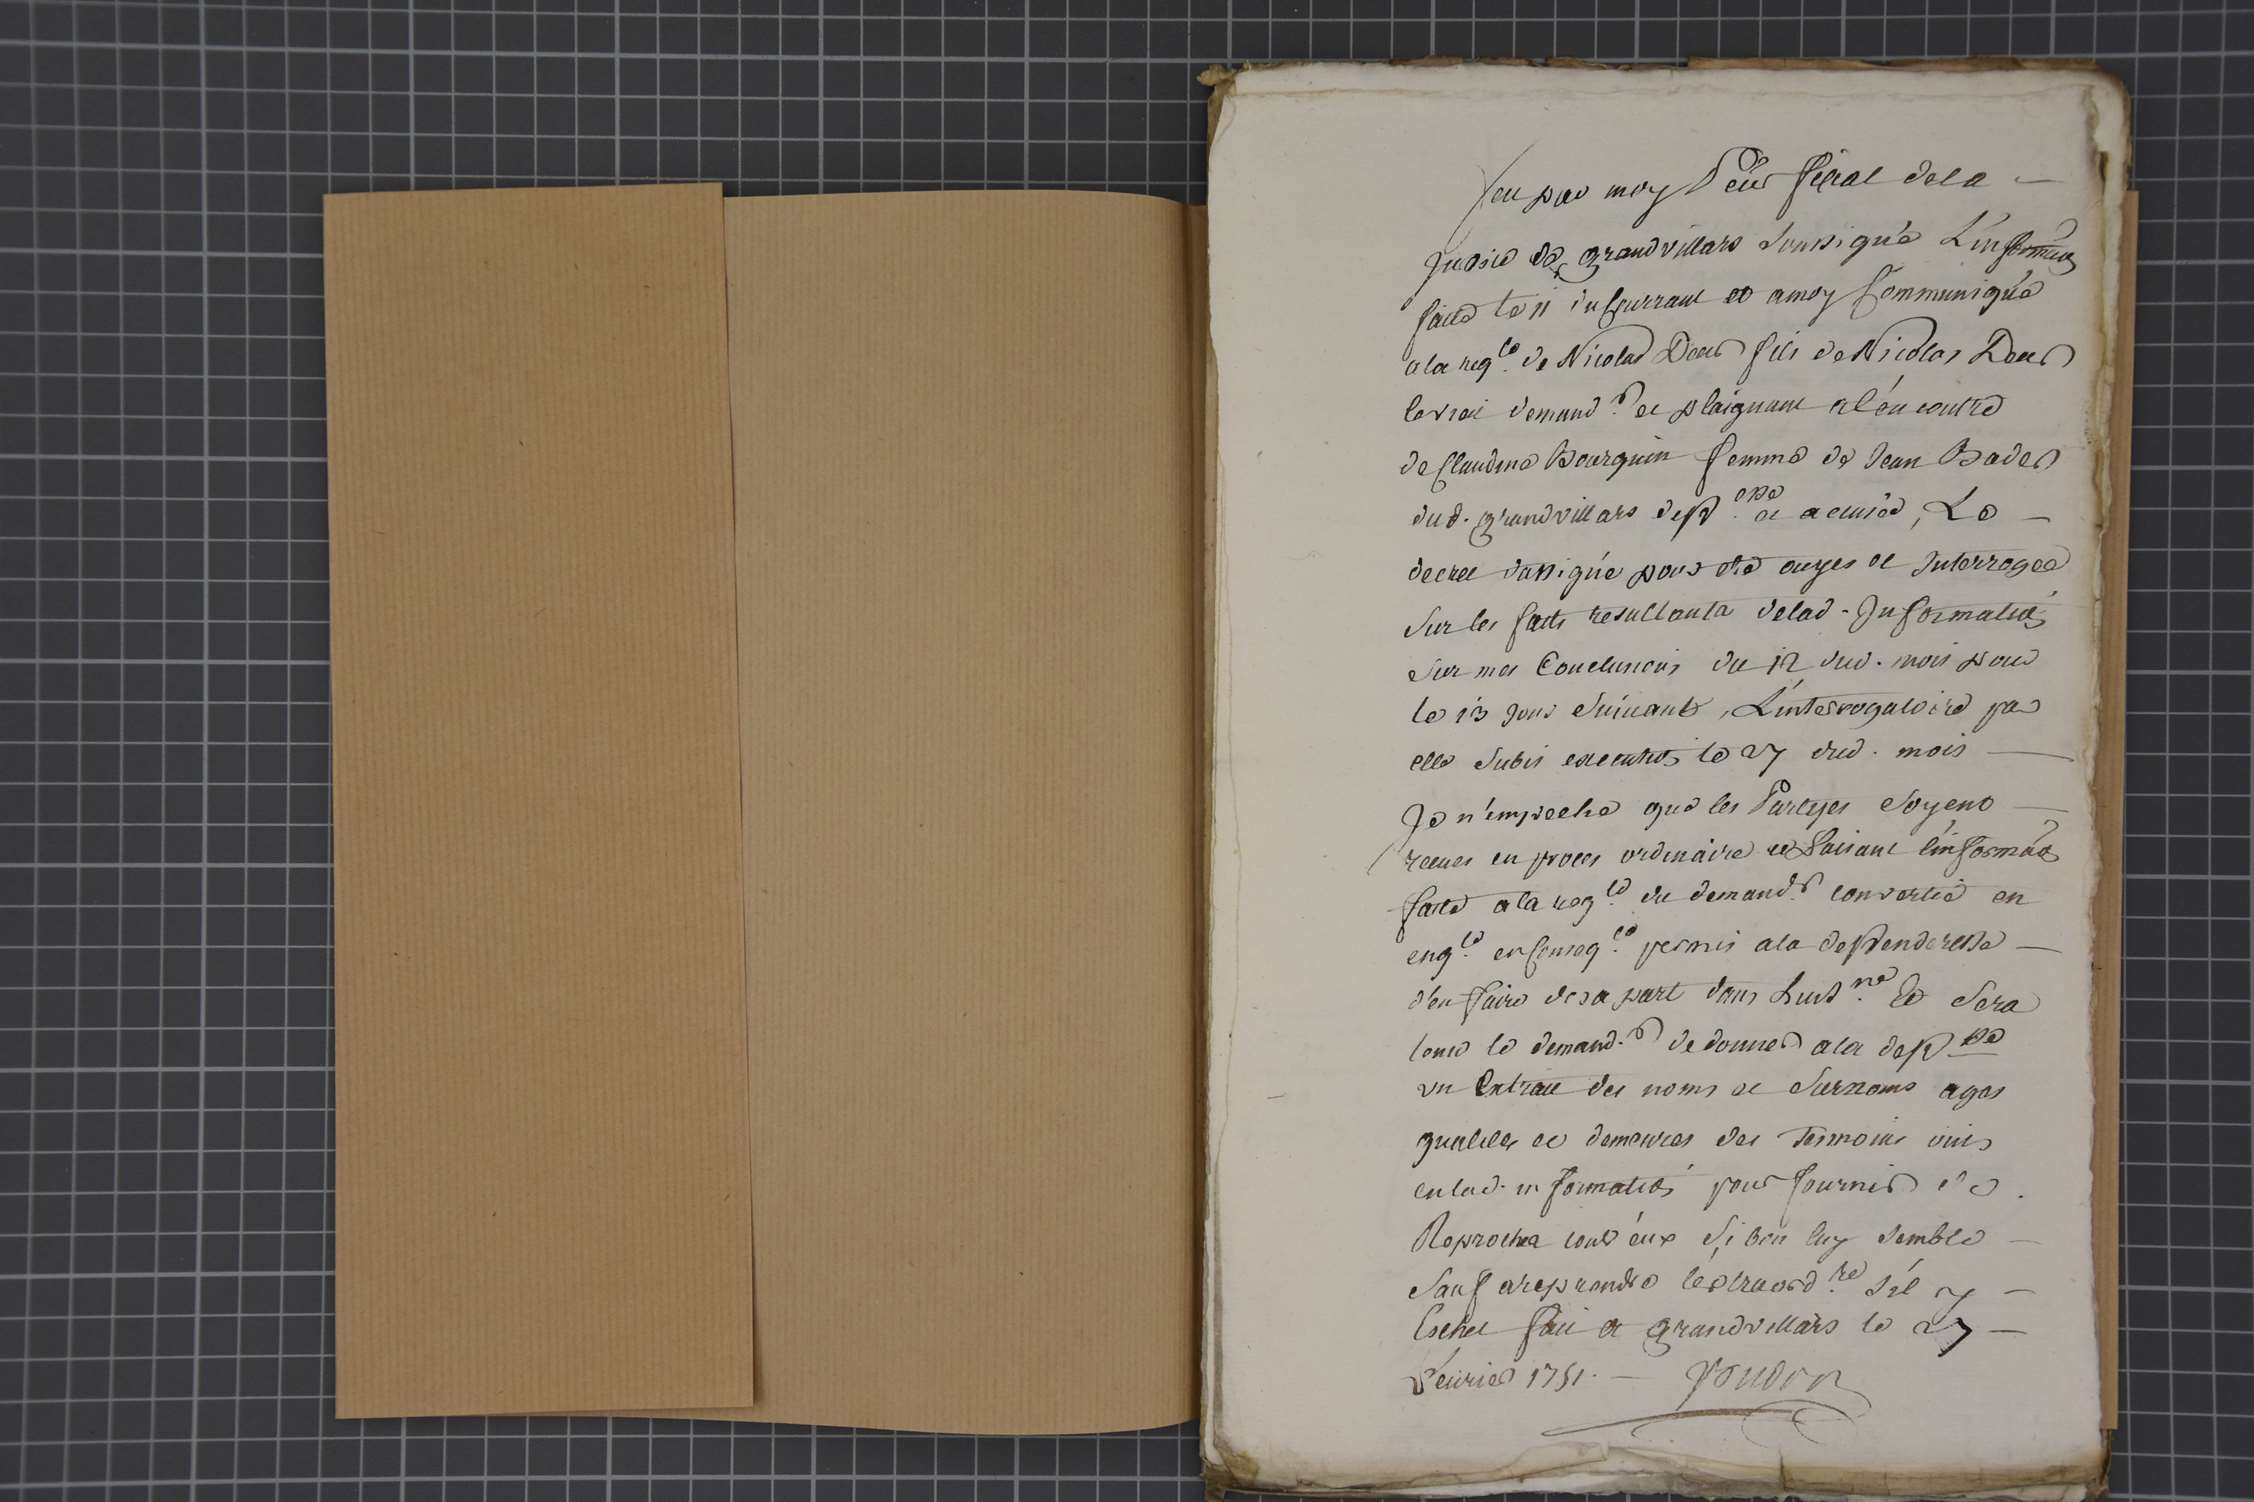 Veu par moy P.eur fiscal dela
Justice de grandvillars soussigné L'informãon
faite le 11 du Courrant et a moy Communiquée
a la reqte. de Nicolas Deur fils de Nicolas Deur
levrai demandr. et plaignant al'éncontre
de Claudine Bourquin femme de Jean Bader
dud. grandvillars deffresse. et accusée, Le
decret dassigné pour etre ouyes et Interrogée
sur les faits resultants delad. Information
sur mes Conclusions du 12 dud. mois pour
le 13 Jour suivant, L'interrogatoire par
elle subis execution le 27 dud. mois
Je n'empeche que les Partyes soyent
recues en proces ordinaire et faisant l'informaõn
faite a la reqte. du demandr. convertie en
enqte. en Conseqce. permis ala deffenderesse
d'en faire de sa part dans huitne. Et sera
tenu le demandr. de donner a la deffsse
un Extrait des noms et surnoms ages
qualités et demeures des temoins ouis
en lad. information pour fournir de
Reproches contr'éux si bon luy semble
sauf areprendre l'extraordre. s'il y
Echet fait a grandvillars le 27
fevrier 1751.